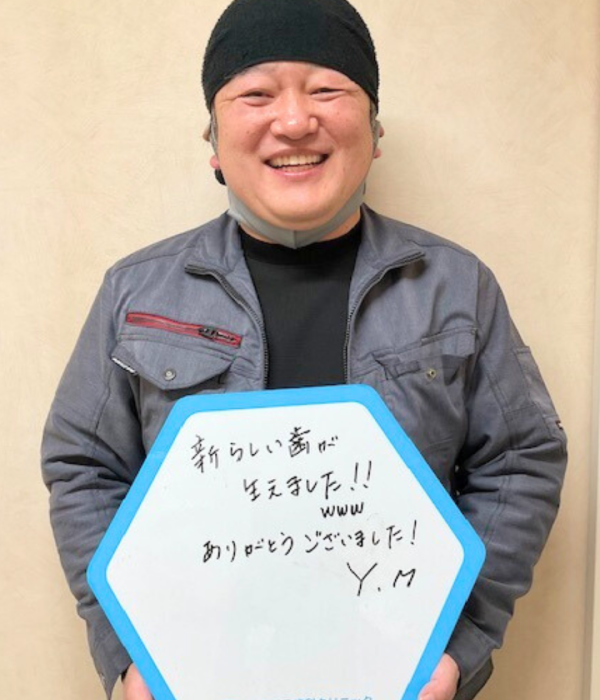 新らしい歯が
生えました!!
www
ありがとうございました!
Y.M